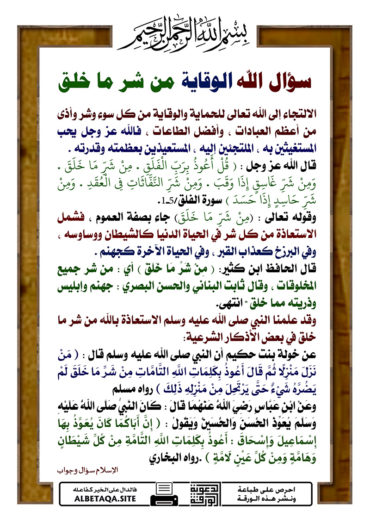 بِسْمِ اللَّهِ الرَّحْمَنِ الرَّحِيمِ
سؤال الله الوقاية من شر ما خلق
الالتجاء إلى الله تعالى للحماية والوقاية من كل سوء وشر وأذى
من أعظم العبادات ، وأفضل الطاعات ، فالله عز وجل يحب
المستغيثين به ، الملتجئين إليه ، المستعيذين بعظمته وقدرته .
قال الله عز وجل : ( قُلْ أَعُوذُ بِرَبِّ الْفَلَقِ . مِنْ شَرِّ مَا خَلَقَ .
وَمِنْ شَرِّ غَاسِقٍ إِذَا وَقَبَ . وَمِنْ شَرِّ النَّفَّاثَاتِ فِي الْعُقَدِ . وَمِنْ
شَرِّ حَاسِدٍ إِذَا حَسَدَ ) سورة الفلق/1ـ5.
وقوله تعالى : (مِنْ شَرِّ مَا خَلَقَ) جاء بصفة العموم ، فشمل
الاستعاذة من كل شر في الحياة الدنيا كالشيطان ووساوسه ،
وفي البرزخ كعذاب القبر ، وفي الحياة الآخرة كجهنم .
قال الحافظ ابن كثير: ( مِنْ شَرِّ مَا خَلَقَ ) أي : من شر جميع
المخلوقات ، وقال ثابت البناني والحسن البصري : جهنم وإبليس
وذريته مما خلق" انتهى.
وقد علمنا النبي صلى الله عليه وسلم الاستعاذة بالله من شر ما
خلق في بعض الأذكار الشرعية:
عن خولة بنت حكيم أن النبي صلى الله عليه وسلم قال : ( مَنْ
نَزَلَ مَنْزِلًا ثُمَّ قَالَ أَعُوذُ بِكَلِمَاتِ اللَّهِ التَّامَّاتِ مِنْ شَرِّ مَا خَلَقَ لَمْ
يَضُرَّهُ شَيْءٌ حَتَّى يَرْتَحِلَ مِنْ مَنْزِلِهِ ذَلِكَ ) رواه مسلم
وعن ابْنِ عَبَّاسٍ رَضِيَ اللَّهُ عَنْهُمَا قَالَ : كَانَ النَّبِيُّ صَلَّى اللَّهُ عَلَيْهِ
وَسَلَّمَ يُعَوِّذُ الْحَسَنَ وَالْحُسَيْنَ وَيَقُولُ : ( إِنَّ أَبَاكُمَا كَانَ يُعَوِّذُ بِهَا
إِسْمَاعِيلَ وَإِسْحَاقَ : أَعُوذُ بِكَلِمَاتِ اللَّهِ التَّامَّةِ مِنْ كُلِّ شَيْطَانٍ
وَهَامَّةٍ وَمِنْ كُلِّ عَيْنٍ لَامَّةٍ ) .رواه البخاري
الإسلام سؤال وجواب
احرص على طباعة
ونشر هذه الورقة
الورقة
الدعوية
فالدال على الخير كفاعله
ALBETAQA.SITE